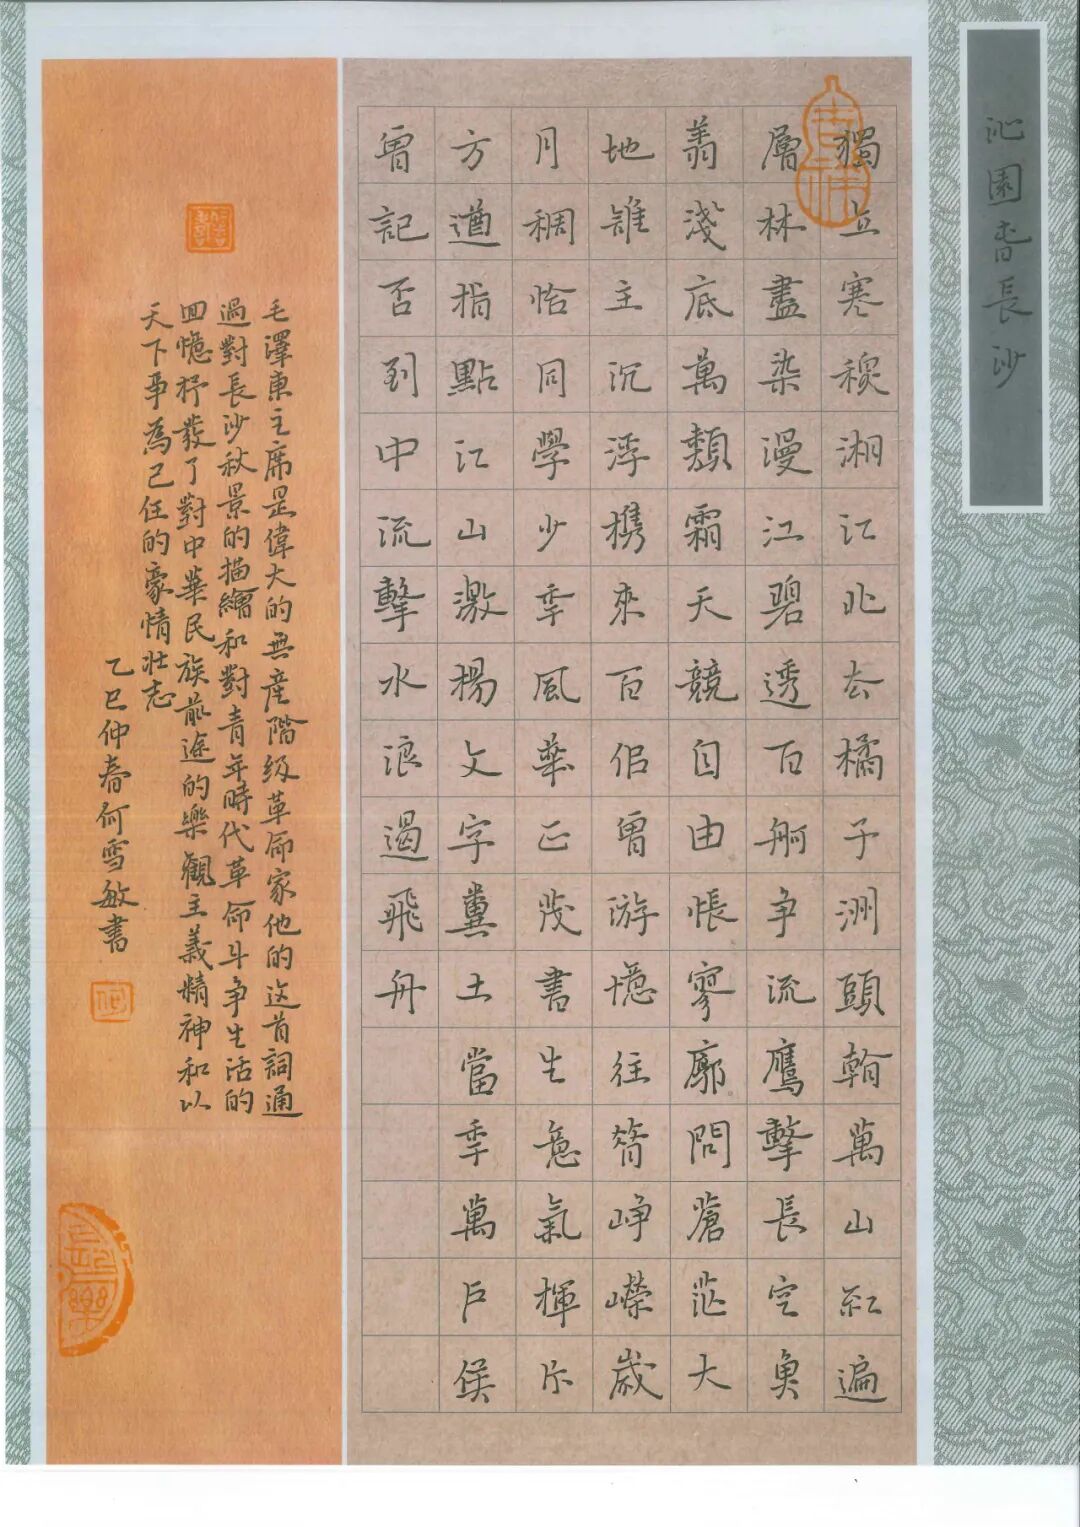 沁園春長沙
獨立寒秋湘江北去橘子洲頭看萬山紅遍
層林盡染漫江碧透百舸争流鷹擊長空魚
翔淺底萬類霜天競自由悵寥廓問蒼茫大
地誰主沉浮携來百侣曾游憶往昔崢嶸歲
月稠恰同學少年風華正茂書生意氣揮斥
方遒指點江山激揚文字糞土當年萬户侯
曾記否到中流擊水浪遏飛舟
毛澤東主席是偉大的無産階级革命家他的这首詞通
過對長沙秋景的描繪和對青年時代革命斗争生活的
回憶抒發了對中華民族前途的樂觀主義精神和以
天下事為己任的豪情壮志
乙巳仲春何雪敏書
何